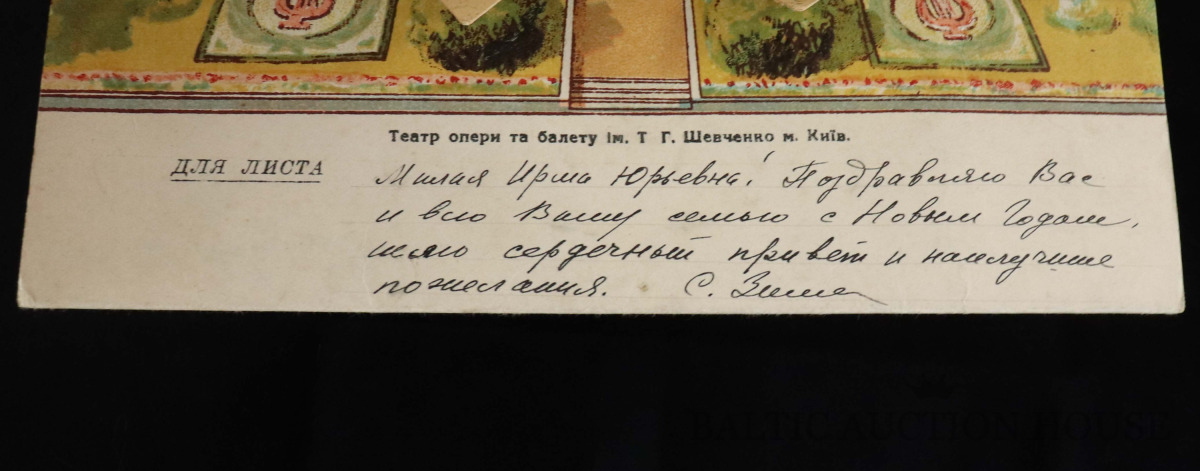 Театр опери та балету ім. Т Г. Шевченко м. Київ.
ДЛЯ ЛИСТА
Милая Ирма Юрьевна! Поздравляю Вас
и всю Вашу семью с Новым Годом,
шлю сердечный привет и наилучшие
пожелания. С.
BALTIC AUCTION HOUSE